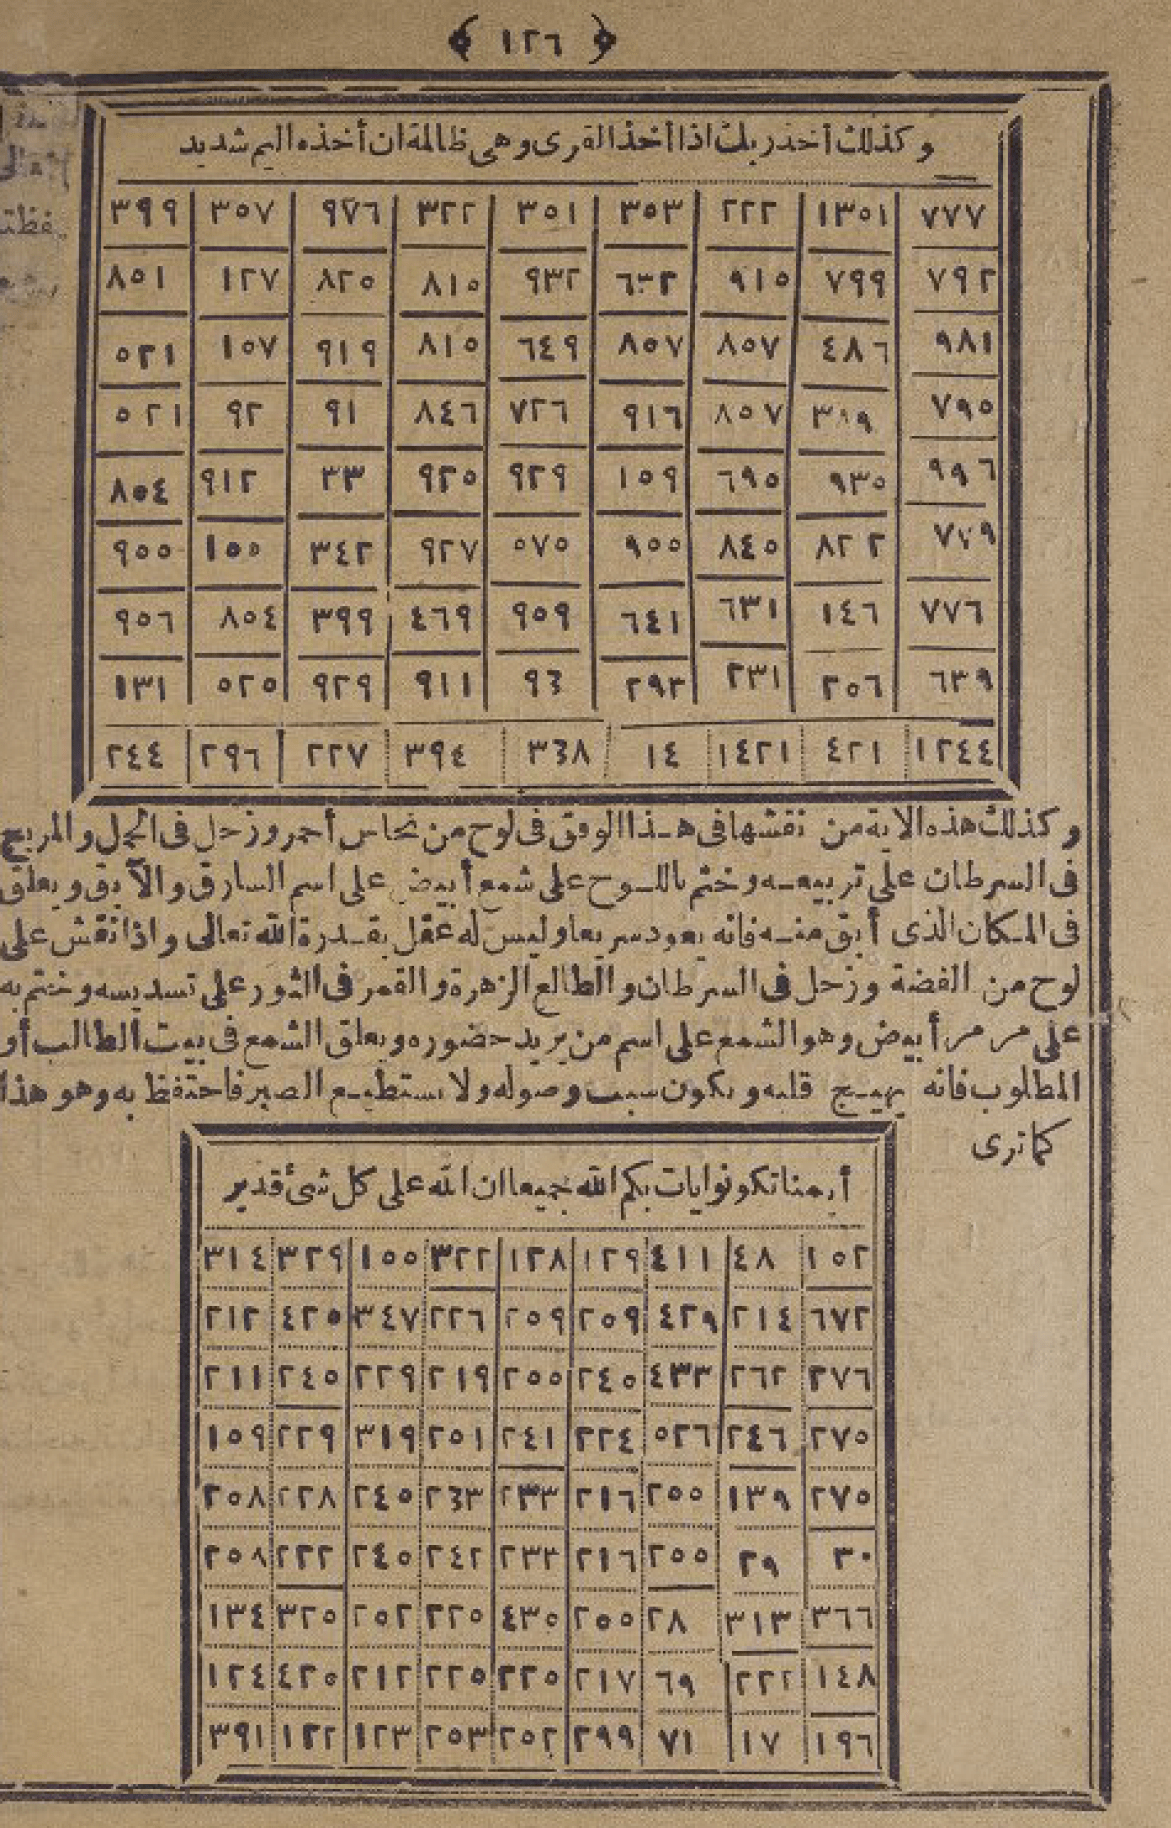 ١٢٦
وكذلك أخذ ربك اذا أخذ القرى وهى ظالمة ان أخذه اليم شديد
٧٧٧ ١٣٥١ ٢٢٢ ٣٥٣ ٣٥١ ٣٢٢ ٩٧٦ ٣٥٧ ٣٩٩
٧٩٢ ٧٩٩ ٩١٥ ٦٣٢ ٩٣٢ ٨١٥ ٨٢٥ ١٢٧ ٨٥١
٩٨١ ٤٨٦ ٨٥٧ ٨٥٧ ٦٤٩ ٨١٥ ٩١٩ ١٥٧ ٥٢١
٧٩٥ ٣٨٩ ٨٥٧ ٩١٦ ٧٢٦ ٨٤٦ ٩١ ٩٢ ٥٢١
٩٩٦ ٩٣٥ ٦٩٥ ١٥٩ ٩٢٩ ٩٢٥ ٣٣ ٩١٢ ٨٥٤
٧٧٩ ٨٢٢ ٨٤٥ ٩٥٥ ٥٧٥ ٩٢٧ ٣٤٢ ١٥٥ ٩٥٥
٧٧٦ ١٤٦ ٦٣١ ٦٤١ ٩٥٩ ٤٦٩ ٣٩٩ ٨٥٤ ٩٥٦
٦٣٩ ٢٥٦ ٢٣١ ٢٩٣ ٩٣ ٩١١ ٩٢٩ ٥٢٥ ١٣١
١٢٤٤ ٤٢١ ١٤٢١ ١٤ ٣٣٨ ٣٩٤ ٢٢٧ ٢٩٦ ٢٤٤
وكذلك هذه الاية من نقشها فى هذا الوفق فى لوح من نحاس أحمر وزحل فى الحمل والمريخ
فى السرطان على تربيعه وختم باللوح على شمع أبيض على اسم السارق والآبق ويعلق
فى المكان الذى أبق منه فانه يعود سريعا وليس له عقل بقدرة الله تعالى واذا نقش على
لوح من الفضة وزحل فى السرطان والطالع الزهرة والقمر فى الثور على تسديسه وختم به
على مرمر أبيض وهو الشمع على اسم من يريد حضوره ويعلق الشمع فى بيت الطالب أو
المطلوب فانه يهيج قلبه ويكون سبب وصوله ولا يستطيع الصبر فاحتفظ به وهو هذا
كما ترى
أينما تكونوا يات بكم الله جميعا ان الله على كل شئ قدير
١٥٢ ٤٨ ٤١١ ١٢٩ ١٢٨ ٣٢٢ ١٥٥ ٣٢٩ ٣١٤
٦٧٢ ٢١٤ ٤٢٩ ٢٥٩ ٢٥٩ ٢٢٦ ٣٤٧ ٤٢٥ ٢١٢
٢٧٦ ٢٦٢ ٤٣٣ ٢٤٥ ٢٥٥ ٢١٩ ٢٢٩ ٢٤٥ ٢١١
٢٧٥ ٢٤٦ ٥٢٦ ٢٢٤ ٢٤١ ٢٥١ ٣١٩ ٢٢٩ ١٥٩
٢٧٥ ١٣٩ ٢٥٥ ٢١٦ ٢٣٣ ٢٣٣ ٢٤٥ ٢٢٨ ٢٥٨
٣٠ ٢٩ ٢٥٥ ٢١٦ ٢٣٣ ٢٤٢ ٢٤٥ ٢٢٢ ٢٥٨
٣٦٦ ٣١٣ ٢٨ ٢٥٥ ٤٣٥ ٢٢٥ ٢٥٢ ٣٢٥ ١٣٤
١٤٨ ٢٢٢ ٦٩ ٢١٧ ٢٢٥ ٢٢٥ ٢١٢ ٤٢٥ ١٢٤
١٩٦ ١٧ ٧١ ٢٩٩ ٢٥٢ ٢٥٣ ١٢٣ ١٢٢ ٣٩١